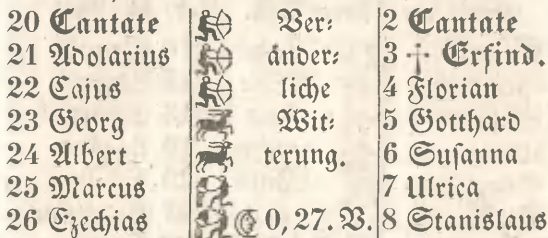 20 Cantate Ver⸗ 2 Cantate
21 Adolarius änder⸗ 3 † Erfind.
22 Cajus liche 4 Florian
23 Georg Wit⸗ 5 Gotthard
24 Albert terung. 6 Suſanna
25 Marcus 7 Ulrica
26 Ezechias 0, 27. V. 8 Stanislaus